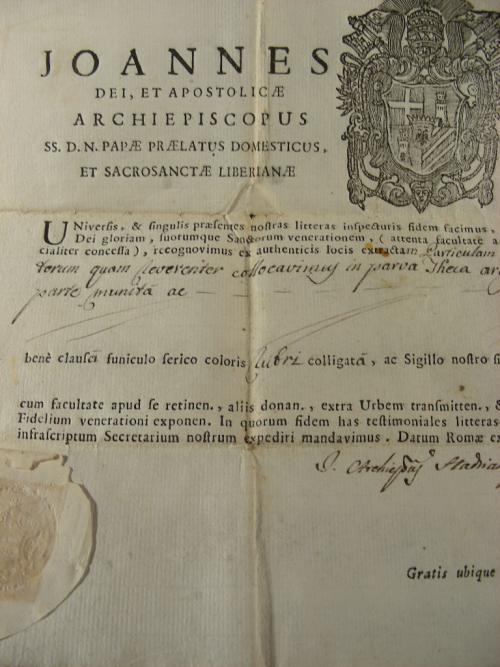 JOANNES
DEI, ET APOSTOLICÆ
ARCHIEPISCOPUS
SS. D. N. PAPÆ PRÆLATUS DOMESTICUS,
ET SACROSANCTÆ LIBERIANÆ
UNiversis, & singulis præsentes nostras litteras inspecturis fidem facimus,
Dei gloriam, suorumque Sanctorum venerationem, (attenta facultate a
cialiter concessa), recognovimus ex authenticis locis extractam particulam
torum quam reverenter collocavimus in parva Theca ar
parte munitâ ac
benè clausâ funiculo serico coloris rubri colligatâ, ac Sigillo nostro si
cum facultate apud se retinen., aliis donan., extra Urbem transmitten., &
Fidelium venerationi exponen. In quorum fidem has testimoniales litteras
infrascriptum Secretarium nostrum expediri mandavimus. Datum Romæ ex
J. Archiepûs
Gratis ubique